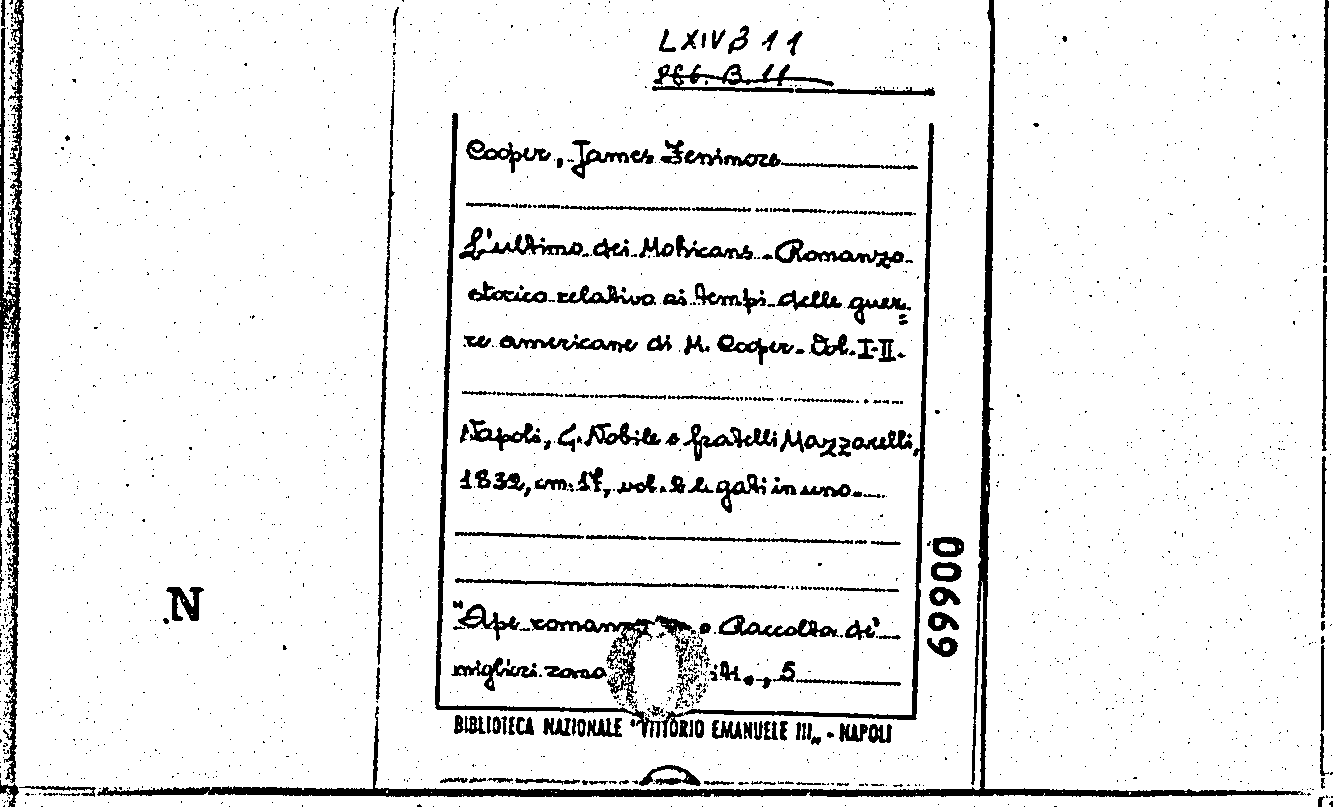 LXIV B 11
986. B. 11
Cooper, James Fenimore
L'ultimo dei Mohicans - Romanzo
storico relativo ai tempi delle guer=
re americane di M. Cooper. Vol. I-II.
Napoli, G. Nobile e fratelli Mazzarelli,
1832, cm. 17, vol. 2 legati in uno.
"Ape o Raccolta de'
migliori 5
BIBLIOTECA NAZIONALE "VITTORIO EMANUELE III„ - NAPOLI
00669
N